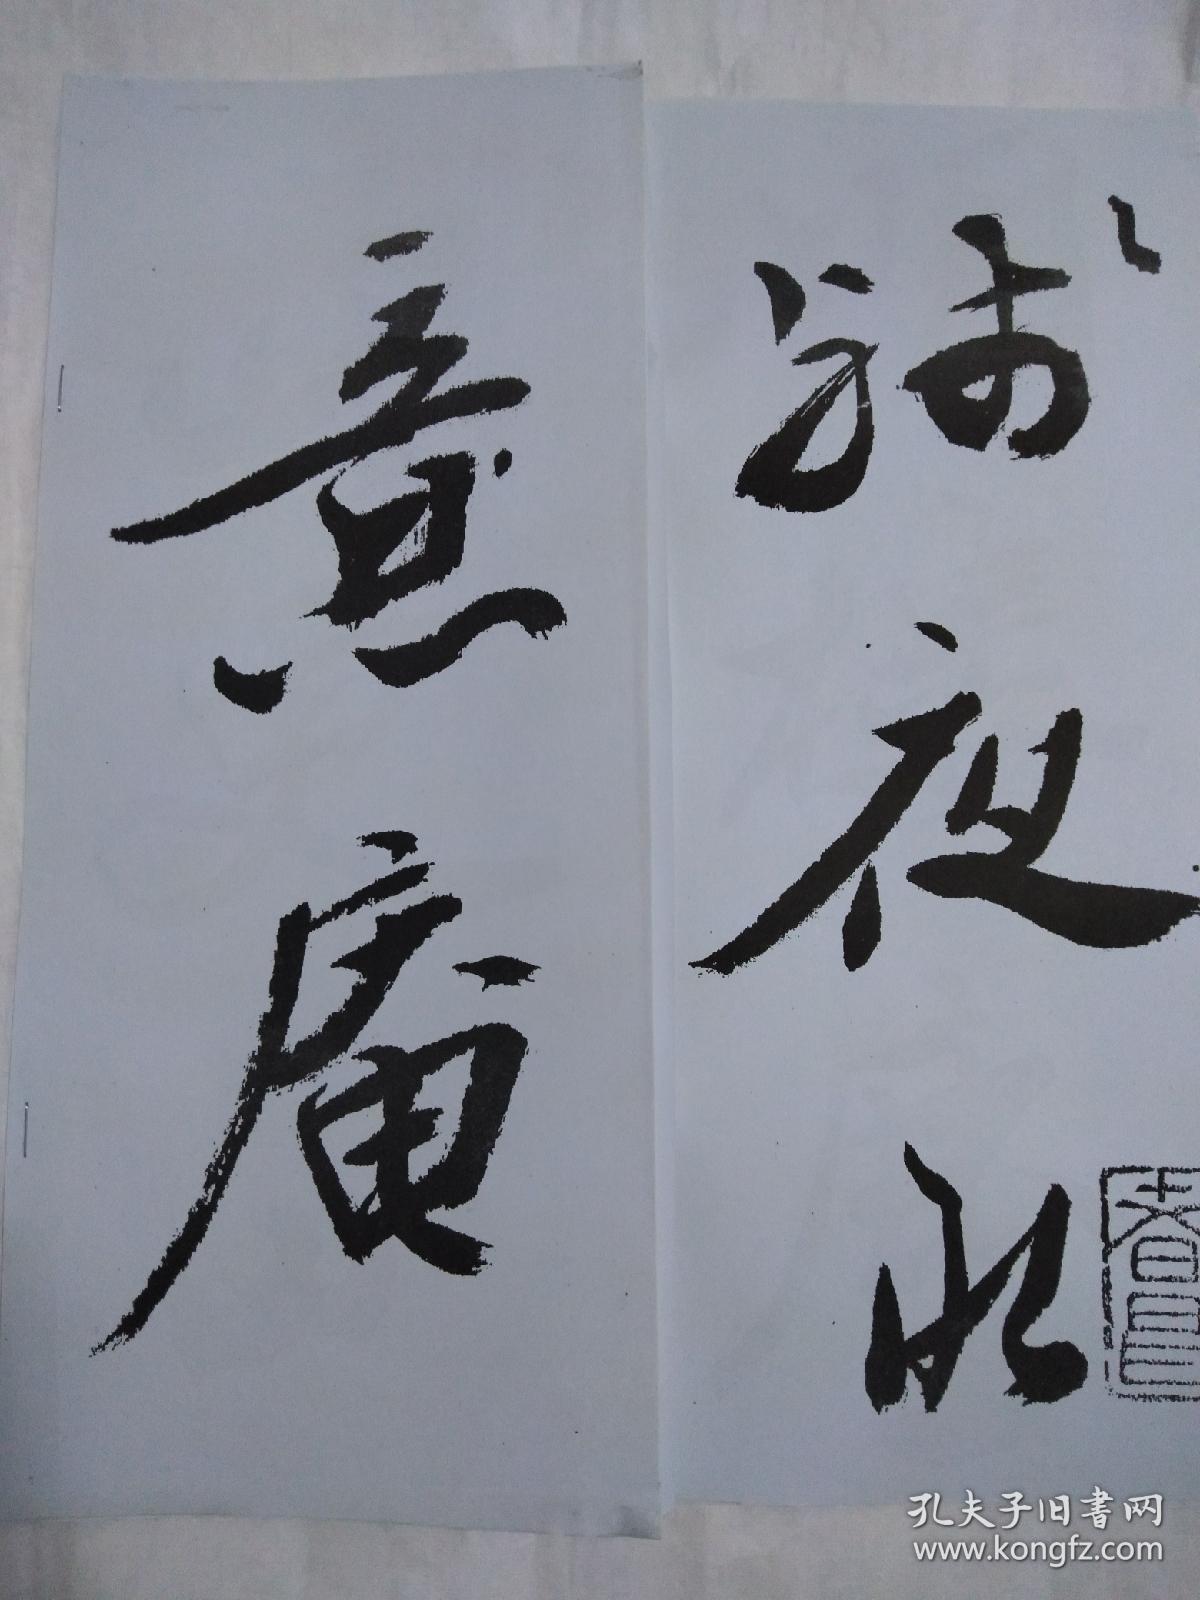 夜水
意庵
孔夫子旧书网
www.kongfz.com